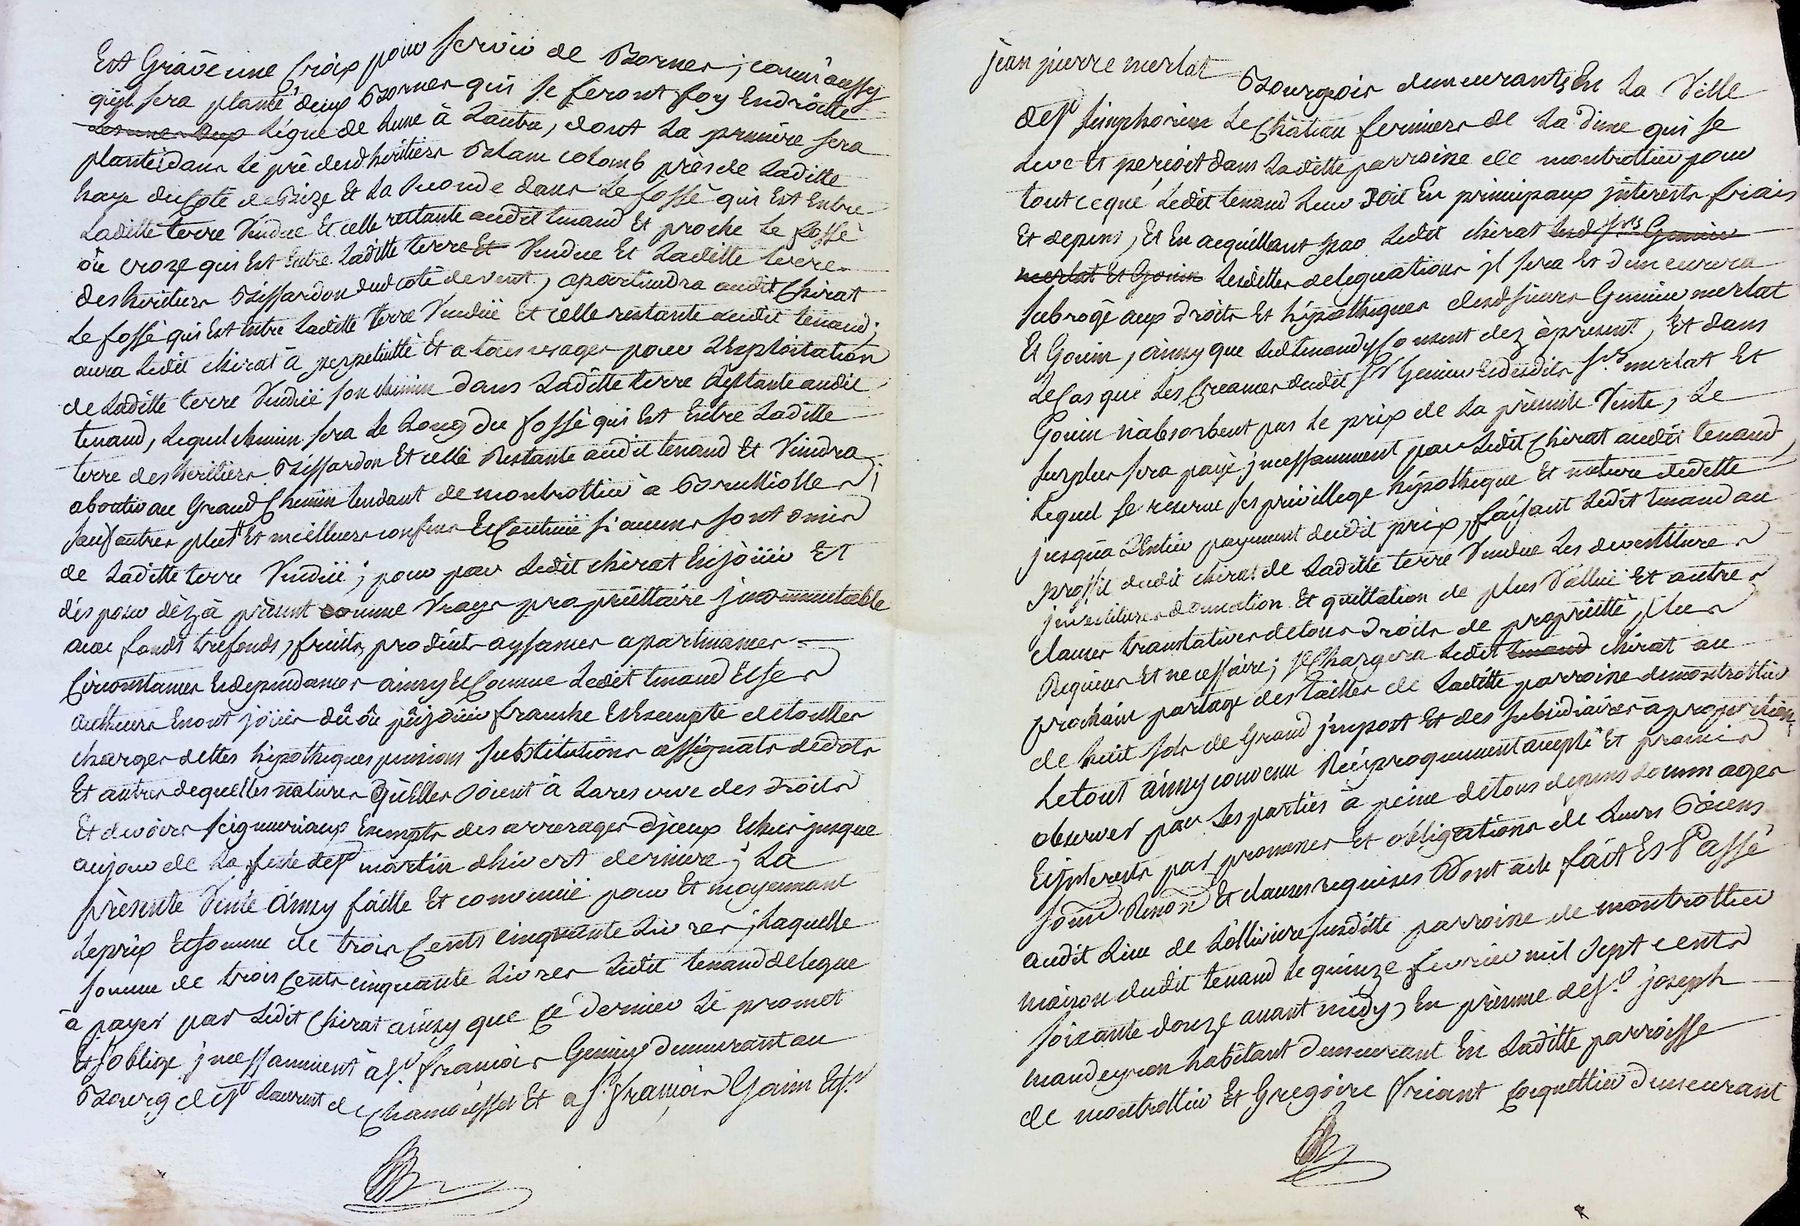 Est Gravé une Croix pour servir de Borner, comm'aussy
qu'yl sera planté deux Borner qui se feront foy Endroitte
Ligne de Lune à Lautre, dont La première sera
plantée dans Le pré desd héritiers Colomb près de Laditte
haye du Coté de Bize Et La seconde dans Le fossé qui Est Entre
Laditte terre Vendue Et celle restante audit tenaud Et proche Le fossé
ou croze qui Est Entre Laditte terre Et Vendue Et Laditte terre
des héritiers Bissardon dud coté de vent, apartiendra audit Chirat
Le fossé qui Est Entre Laditte terre Vendüe Et celle restante audit tenaud;
aura Ledit chirat à perpetuitté Et a tous usages pour L'Exploitation
de Laditte terre Vendüe son chemin dans Laditte terre Restante audit
tenaud, Lequel chemin sera Le Long du fossé qui Est Entre Laditte
terre des héritiers Bissardon Et celle Restante audit tenaud Et Viendra
aboutir au Grand Chemin tendant de montrottier à Brussiolles;
sauf autres plus Et meilleurs confins Et Contenüe si aucuns sont omis
de Laditte terre Vendüe; pour par Ledit chirat En joüir Et
dès pour dèz à présent comme Vraye propriettaire jncommutable
avec fonds trefonds, fruits, produits ayssances apartenances
Circonstances Et dependances ainsy Et Comme Ledit tenaud Et ses
autheurs En ont joüis dû ou pû joüir franche Et Exempte de touttes
charges dettes hipotheques pensions substitutions assignats de dots
Et autres de quelles natures qu'Elles soient à La reserve des droits
Et devoirs seigneuriaux Exempts des arrerages d'jceux Echus jusque
au jour de La feste de St martin d'hivert derniere; La
présente Vente ainsy faitte Et convenüe pour Et moyennant
Le prix Et somme de trois Cents cinquante Livres, Laquelle
somme de trois Cents cinquante Livres Ledit tenaud delegue
à payer par Ledit Chirat ainsy que Ce dernier Le promet
Et s'oblige jncessamment à Sr. françois Genin demeurant au
Bourg de St Laurent de Chamousset Et a Sr. françois Gouin Et Sr
jean pierre merlat Bourgois demeurants En La Ville
de St simphorien Le Chateau fermiers de La dime qui se
Leve Et perçoit dans Laditte parroisse de montrottier pour
tout ceque Ledit tenaud Leur Doit En principaux jnterests frais
Et depens, Et En acquittant par Ledit chirat Lesd Srs Genin
merlat Et Gouin Lesdittes deleguations jl sera Et demeurera
subrogé aux droits Et hipotheques desd sieurs Genin merlat
Et Gouin, ainsy que Led tenaud y consent dez à présent, Et dans
Le Cas que Les Creances dudit Sr Genin Et desdits Srs. merlat Et
Gouin n'absorbent pas Le prix de La présente Vente, Le
surplus sera payé jncessamment par Ledit Chirat audit tenaud,
Lequel se reserve ses privillege hipotheque Et nature de dette
jusqu'a L'Entier payement dudit prix, faisant Ledit tenaud au
proffit dudit chirat de Laditte terre Vendue Les devestitures
jnvestitures donnation Et quittation de plus Vallüe Et autres
clauses translatives de tous Droits de proprietté plus
Requises Et necessaire; se Chargera Ledit tenaud chirat au
prochain partage des tailles de Laditte parroisse de montrottier
de huit sols de Grand jmpost Et des subsidiaires à proportion,
Le tout ainsy convenu Réciproquement accepté Et promis
observer par Les parties à peine de tous depens dommages
Et jnterests par promesses Et obligations de Leurs Biens
soum Renon Et clauses requises Dont acte fait Et Passé
audit Lieu de Lolliviere susditte parroisse de montrottier
maison dudit tenaud Le quinze fevrier mil sept cents
soixante douze avant midy, En présence de Sr. joseph
maudeyron habitant demeurant En Laditte parroisse
de montrottier Et Gregoire Friant Coquettier demeurant